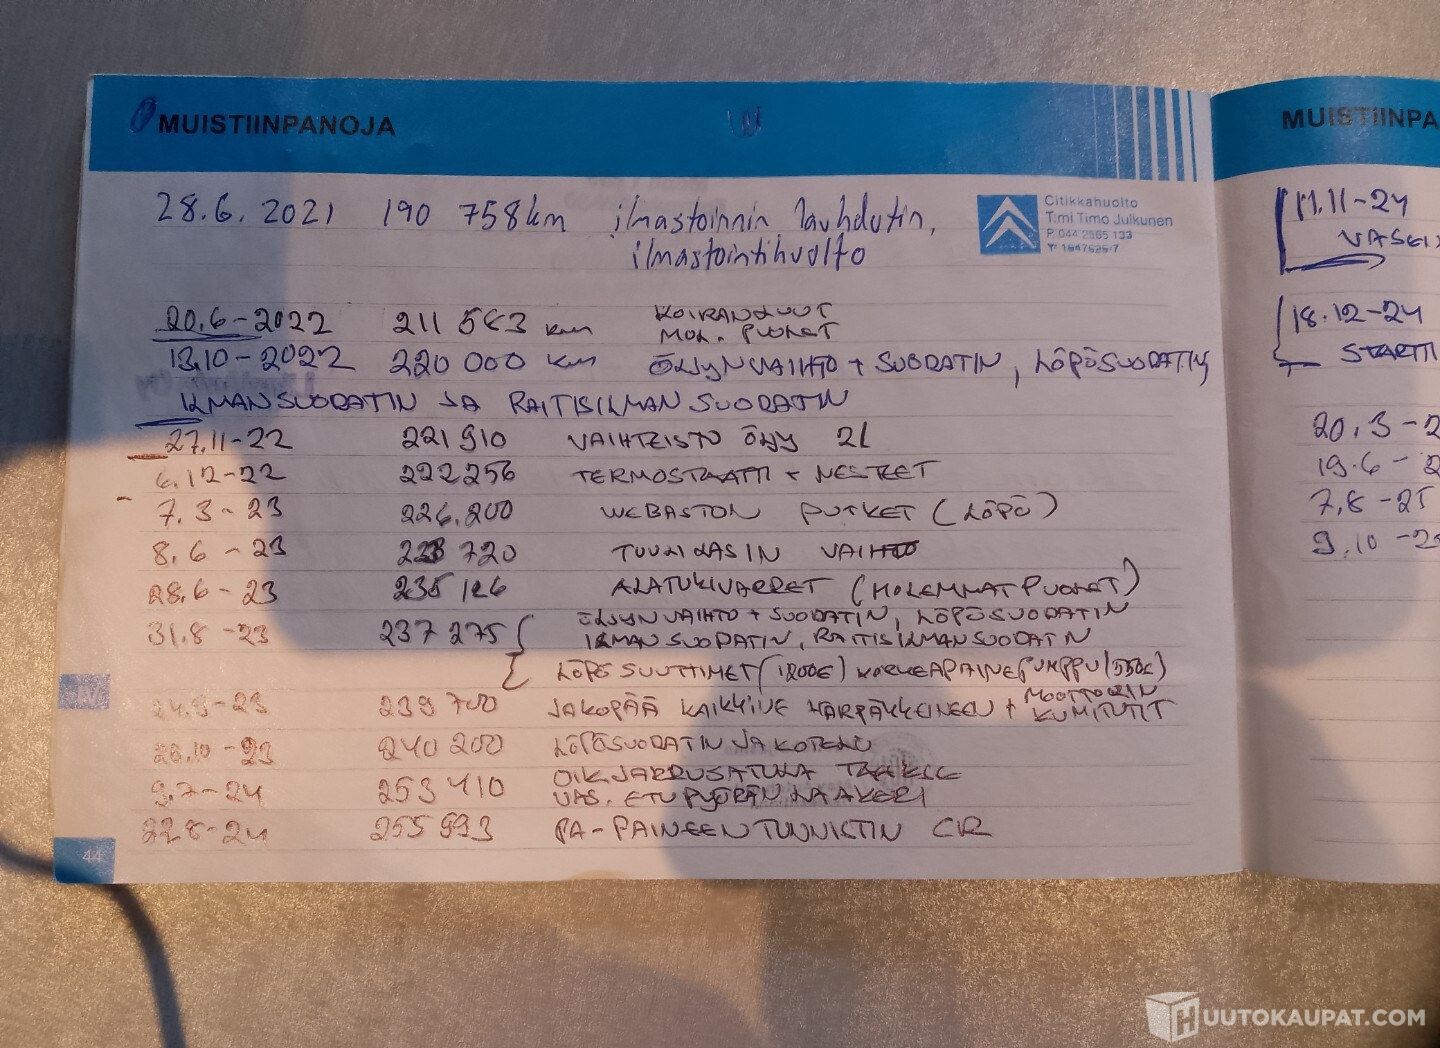 MUISTIINPANOJA
28.6.2021 190 758km ilmastoinnin lauhdutin,
ilmastointihuolto
Citikkahuolto
T:mi Timo Julkunen
P. 044 2565 133
Y: 1847625-7
20.6-2022 211 583 km KOIRANLUUT
MOL. PUOLET
13.10-2022 220 000 km ÖLJYNVAIHTO + SUODATIN, LÖPÖSUODATIN
ILMANSUODATIN JA RAITISILMANSUODATIN
27.11-22 221 910 VAIHTEISTO ÖLJY 2L
6.12-22 222 256 TERMOSTAATTI + NESTEET
7.3-23 226.200 WEBASTON PUTKET (LÖPÖ)
8.6-23 720 TUULILASIN VAIHTO
28.6-23 235 126 ALATUKIVARRET (MOLEMMAT PUOLET)
31.8-23 237 275 ÖLJYNVAIHTO + SUODATIN, LÖPÖSUODATIN
ILMANSUODATIN, RAITISILMANSUODATIN
LÖPÖSUUTTIMET (1200€) KORKEAPAINEPUMPPU (550€)
24.9-23 239 700 JAKOPÄÄ KAIKKINE HÄRPÄKKEINEEN + MOOTTORIN
KUMITUTIT
26.10-23 240 200 LÖPÖSUODATIN JA KOTELO
9.7-24 253 410 OIK. JARRUSATULA TAAKSE
VAS. ETUPYÖRÄN LAAKERI
22.8-24 255 993 PA-PAINEENTUNNISTIN CR
44
IV
MUISTIINPA
11.11-24
18.12-24
STARTTI
20.3-2
19.6-2
7.8-25
9.10-25
HUUTOKAUPAT.COM